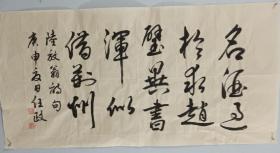 名酒过
於求趙
璧異書
渾似
借荆州
陸放翁詩句
庚申夏日任政